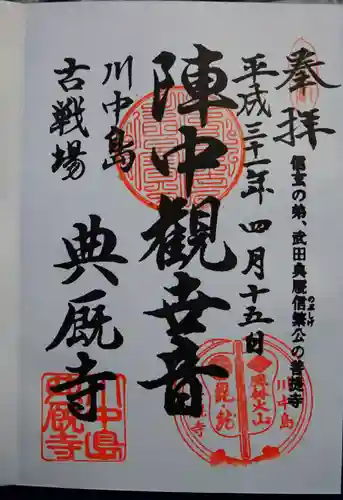 奉拝
信玄の弟、武田典厩信繁公の菩提寺
のぶしげ
平成三十一年四月十五日
陣中観世音
川中島
古戦場
典厩寺
川中島
典厩寺
川中島
風林火山
毘
龍